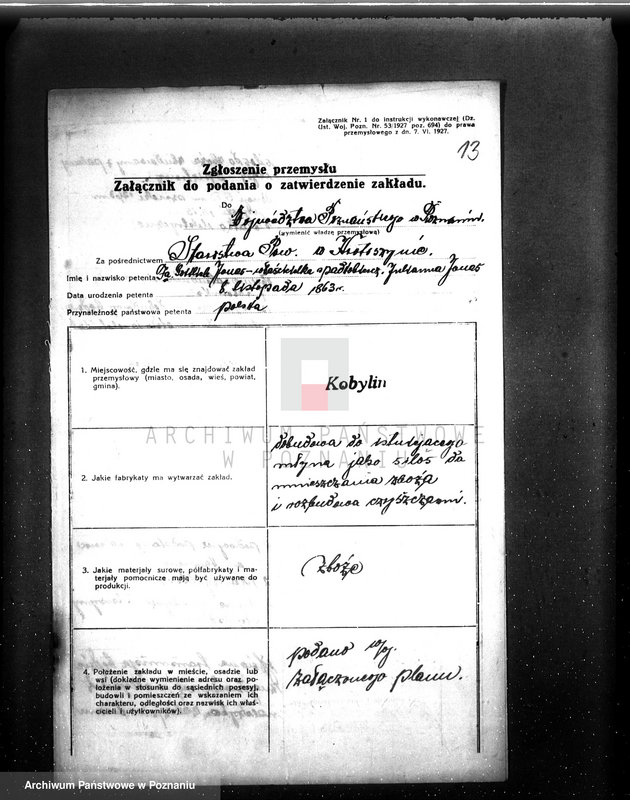 Załącznik Nr. 1 do instrukcji wykonawczej (Dz.
Ust. Woj. Pozn. Nr. 53/1927 poz. 694) do prawa
przemysłowego z dn. 7. VI. 1927.
13
Zgłoszenie przemysłu
Załącznik do podania o zatwierdzenie zakładu.
Do Województwa Poznańskiego w Poznaniu.
(wymienić władzę przemysłową)
Za pośrednictwem Starostwa Pow. w Krotoszynie.
Imię i nazwisko petenta Fa Gottlieb Jonas - właścicielka spadkobierc. Julianna Jonas
Data urodzenia petenta 8 listopada 1863 r.
Przynależność państwowa petenta polska
1. Miejscowość, gdzie ma się znajdować zakład
przemysłowy (miasto, osada, wieś, powiat,
gmina).
Kobylin
ARCHIWUM PAŃSTWOWE
W POZNANIU
2. Jakie fabrykaty ma wytwarzać zakład.
dobudowa do istniejącego
młyna jako silos do
umieszczania zboża
i rozbudowa czyszczarni.
3. Jakie materjały surowe, półfabrykaty i ma-
terjały pomocnicze mają być używane do
produkcji.
zboże
4. Położenie zakładu w mieście, osadzie lub
wsi (dokładne wymienienie adresu oraz, po-
łożenia w stosunku do sąsiednich posesyj,
budowli i pomieszczeń ze wskazaniem ich
charakteru, odległości oraz nazwisk ich właś-
cicieli i użytkowników).
podano wg.
załączonego planu.
Archiwum Państwowe w Poznaniu